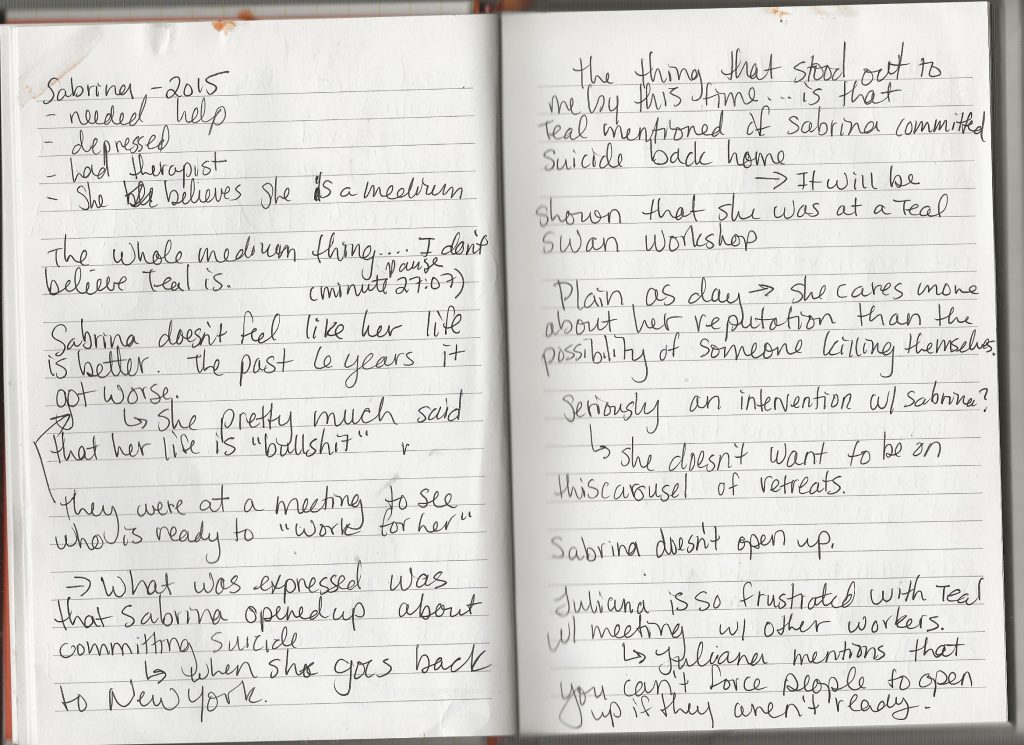 Sabrina - 2015
- needed help
- depressed
- had therapist
- She believes she is a medium
The whole medium thing.... I don't
believe Teal is.
pause
(minute 27:07)
Sabrina doesn't feel like her life
is better. The past 6 years it
got worse.
↳ She pretty much said
that her life is "bullshit"
They were at a meeting to see
who is ready to "work for her"
→ What was expressed was
that Sabrina opened up about
committing suicide
↳ when she goes back
to New York.
the thing that stood out to
me by this time... is that
Teal mentioned if Sabrina committed
suicide back home
→ It will be
shown that she was at a Teal
Swan workshop
Plain as day → she cares more
about her reputation than the
possibility of someone killing themselves.
Seriously an intervention w/ Sabrina?
↳ she doesn't want to be on
this carousel of retreats.
Sabrina doesn't open up.
Juliana is so frustrated with Teal
w/ meeting w/ other workers.
↳ Juliana mentions that
you can't force people to open
up if they aren't ready.